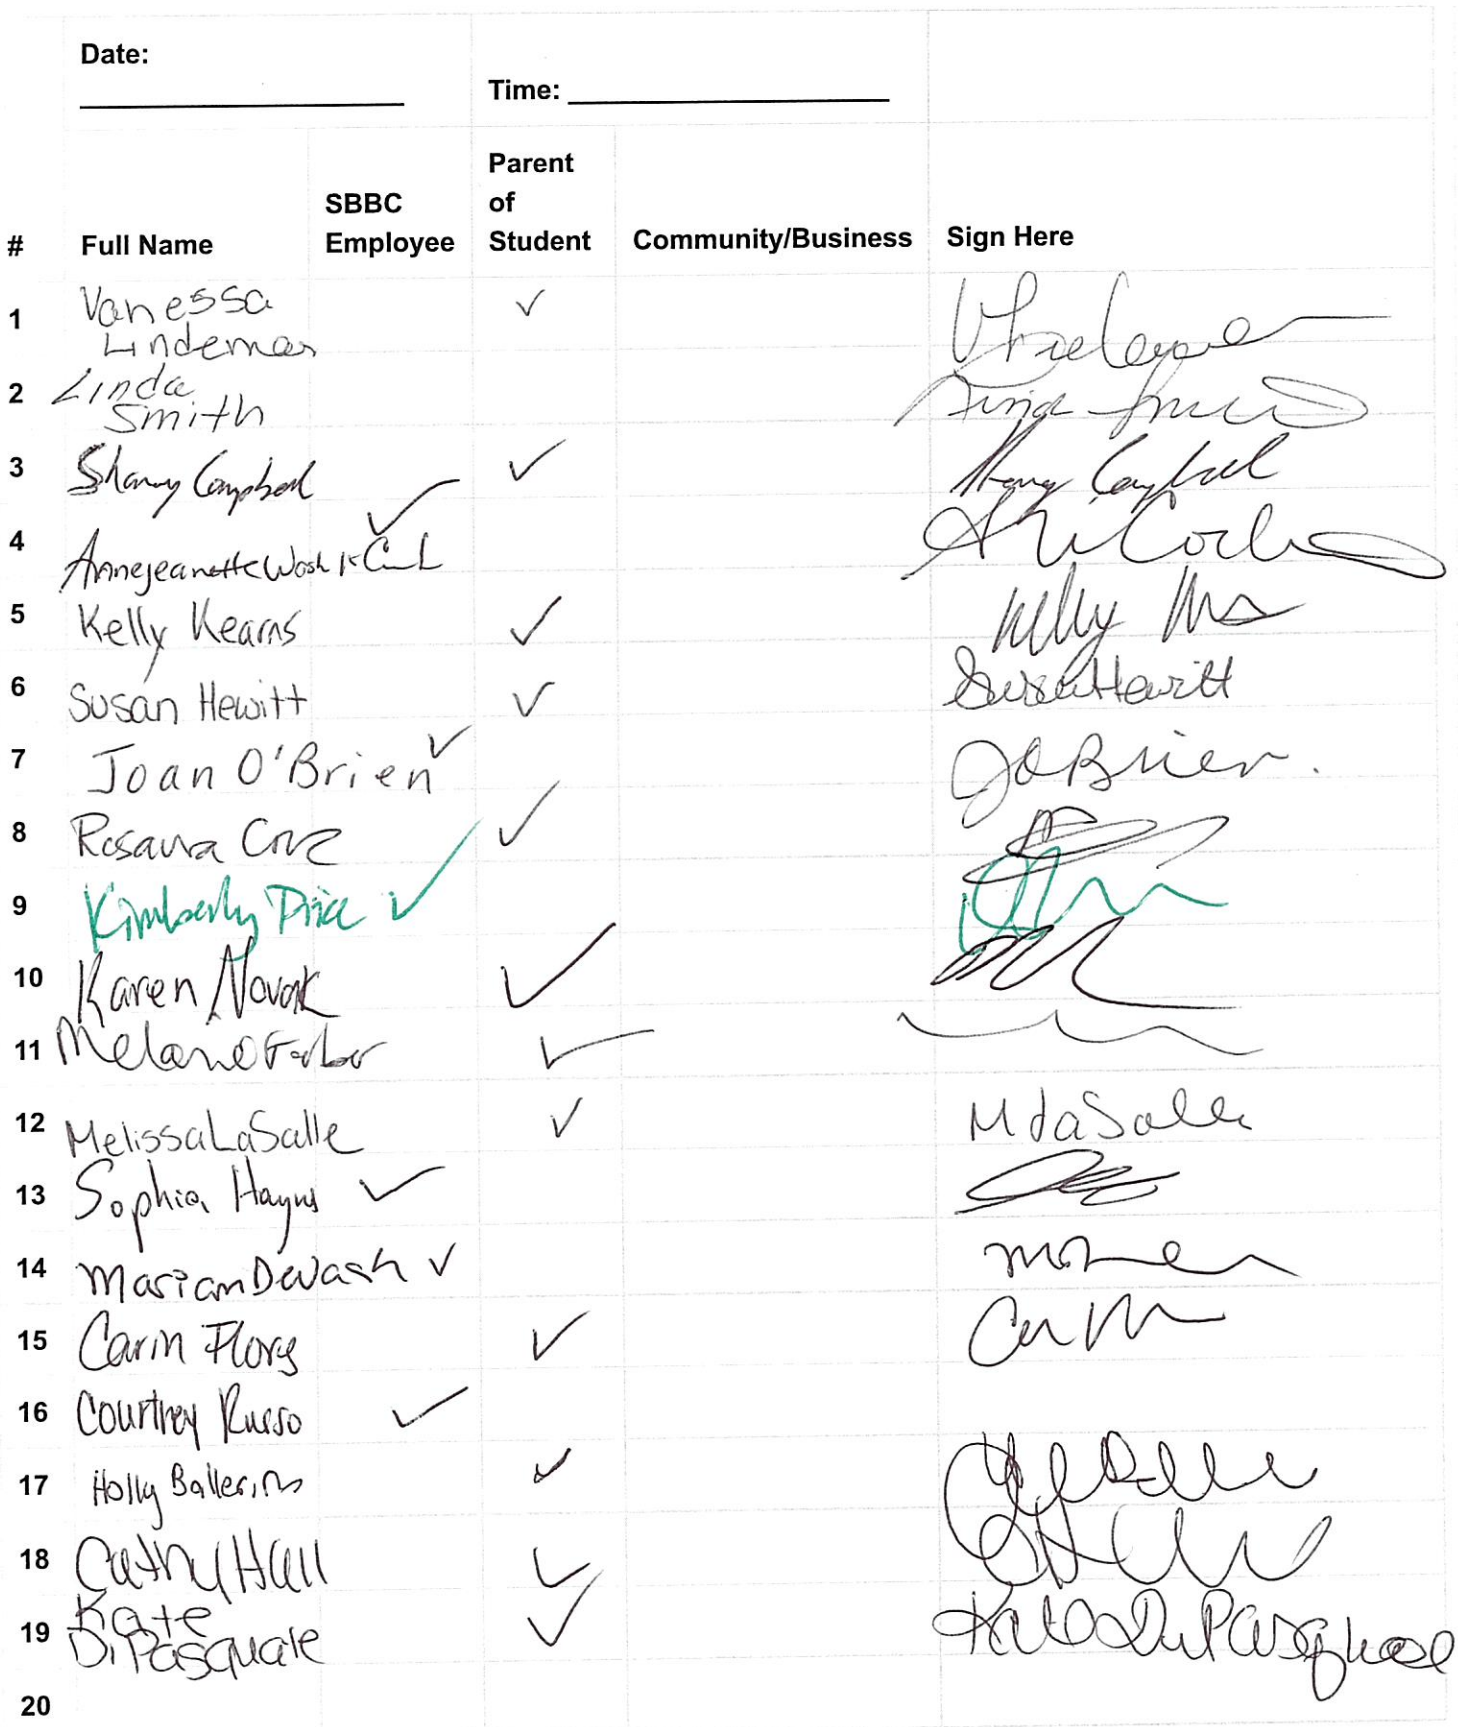 Date: ____________________
Time: ____________________
# Full Name SBBC Employee Parent of Student Community/Business Sign Here
1 Vanessa Lindeman ✓
2 Linda Smith
3 Campbell ✓
4 Annejeanette Wash ✓
5 Kelly Kearns ✓ Kelly
6 Susan Hewitt ✓ Susan Hewitt
7 Joan O'Brien ✓ JOBrien.
8 Rosaura Cruz ✓
9 Kimberly Price ✓
10 Karen Novak ✓
11 ✓
12 Melissa LaSalle ✓ M LaSalle
13 Sophia Haynes ✓
14 Marian Dewash ✓
15 Carin Flores ✓
16 Courtney Russo ✓
17 Holly Ballerino ✓
18 Cathy Hall ✓
19 Kate DiPasquale ✓ Kate DiPasquale
20